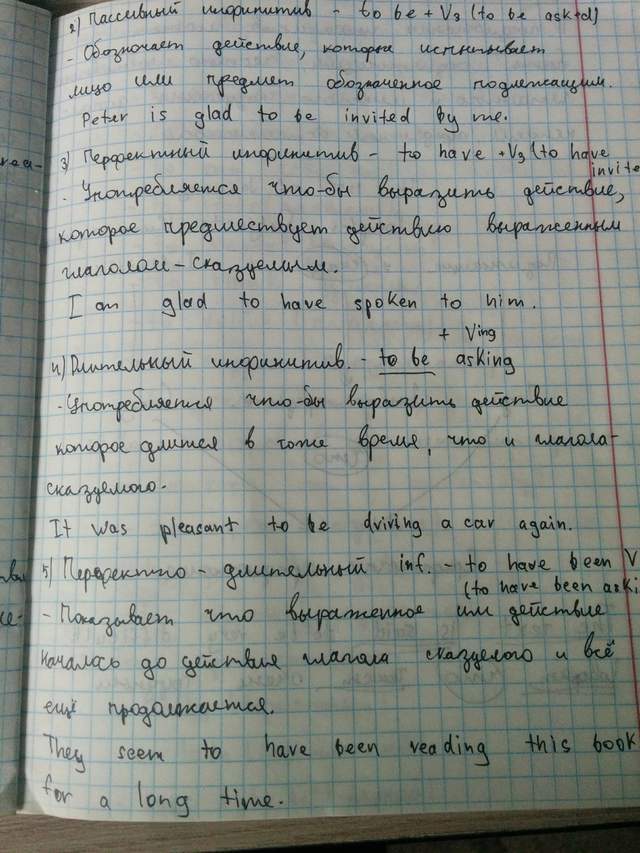 2) Пассивный инфинитив - to be + V3 (to be asked)
- Обозначает действие, которые испытывает
лицо или предмет обозначенное подлежащим.
Peter is glad to be invited by me.
3) Перфектный инфинитив - to have + V3 (to have
invite
- Употребляется что-бы выразить действие,
которое предшествует действию выраженным
глаголом - сказуемым.
I am glad to have spoken to him.
+ Ving
4) Длительный инфинитив. - to be asking
- Употребляется что-бы выразить действие
которое длится в тоже время, что и глагола-
сказуемого.
It was pleasant to be driving a car again.
5) Перфектно - длительный inf. - to have been V
(to have been aski
- Показывает что выраженное им действие
началось до действия глагола сказуемого и всё
ещё продолжается.
They seem to have been reading this book
for a long time.